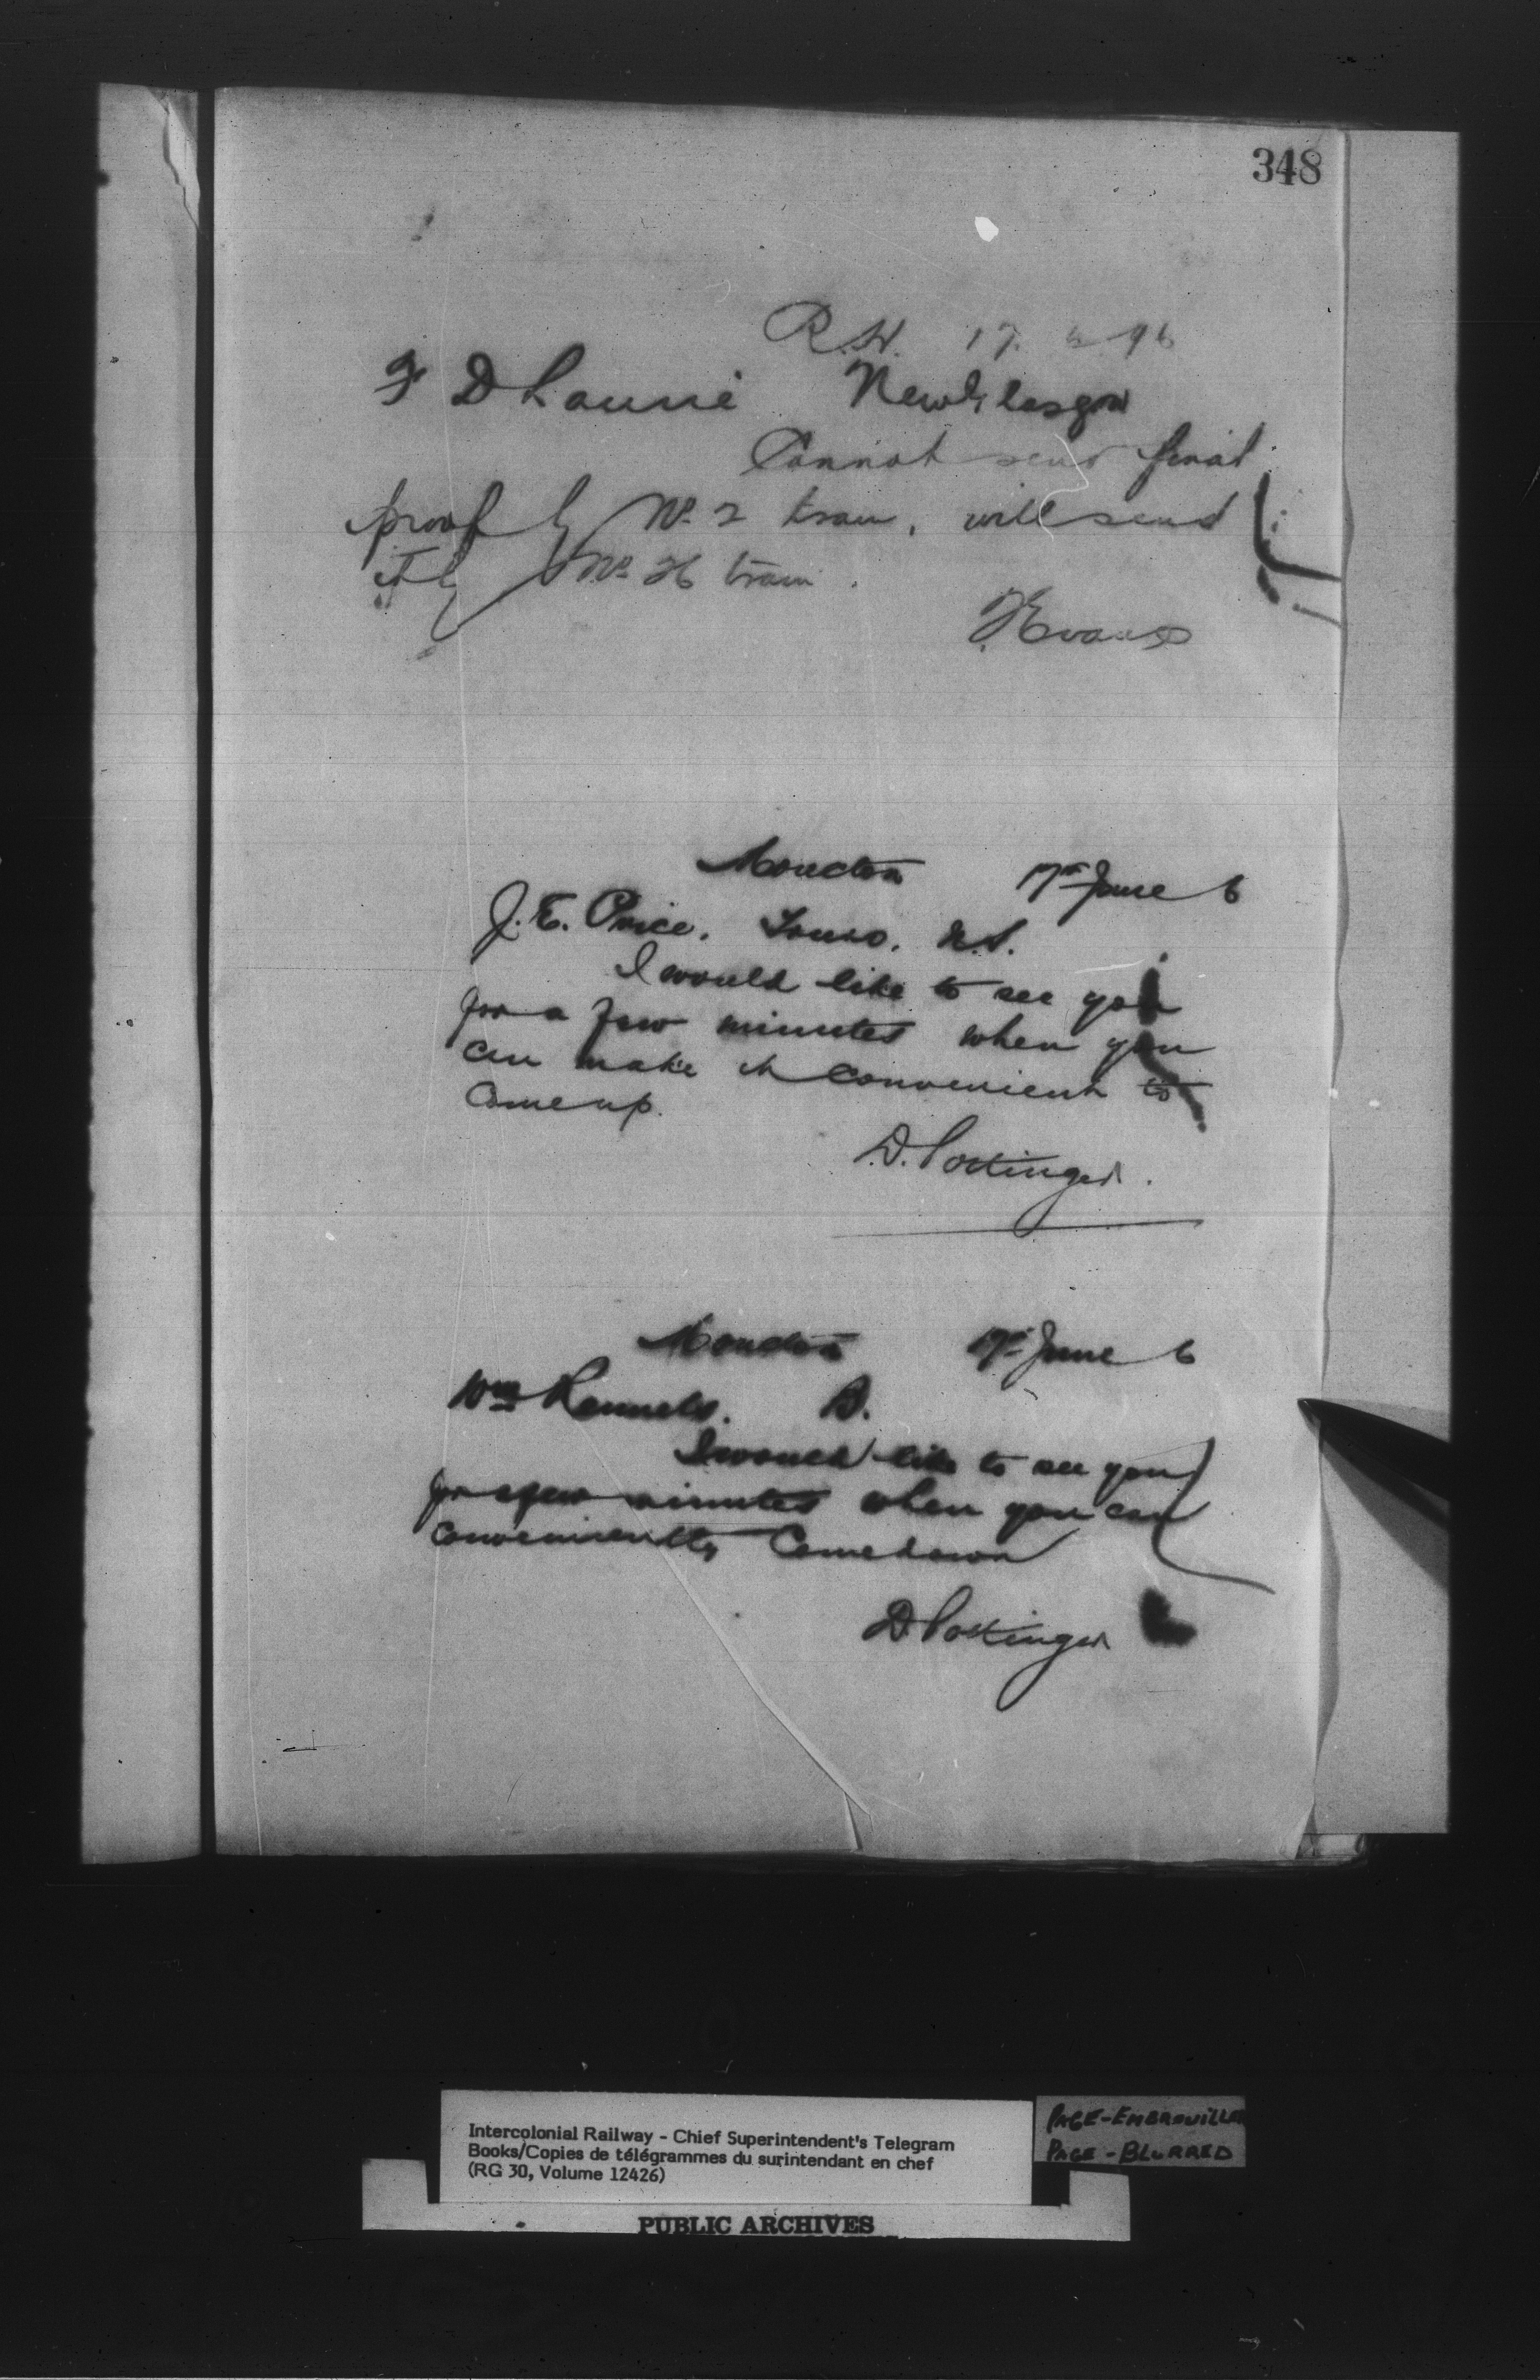 348
R.H. 17. 6 96
F D Laurie New Glasgow
Cannot send final
proof by No. 2 train, will send
it by No. 26 train.
Evans
Moncton 17th June 6
J. E. Price. Truro. N.S.
I would like to see you
for a few minutes when you
can make it convenient to
come up.
D. Pottinger.
Moncton 17th June 6
Wm Rennels. D.
I would like to see you
for a few minutes when you can
conveniently come down
D. Pottinger
Intercolonial Railway - Chief Superintendent's Telegram
Books/Copies de télégrammes du surintendant en chef
(RG 30, Volume 12426)
PAGE-EMBROUILLÉE
PAGE-BLURRED
PUBLIC ARCHIVES